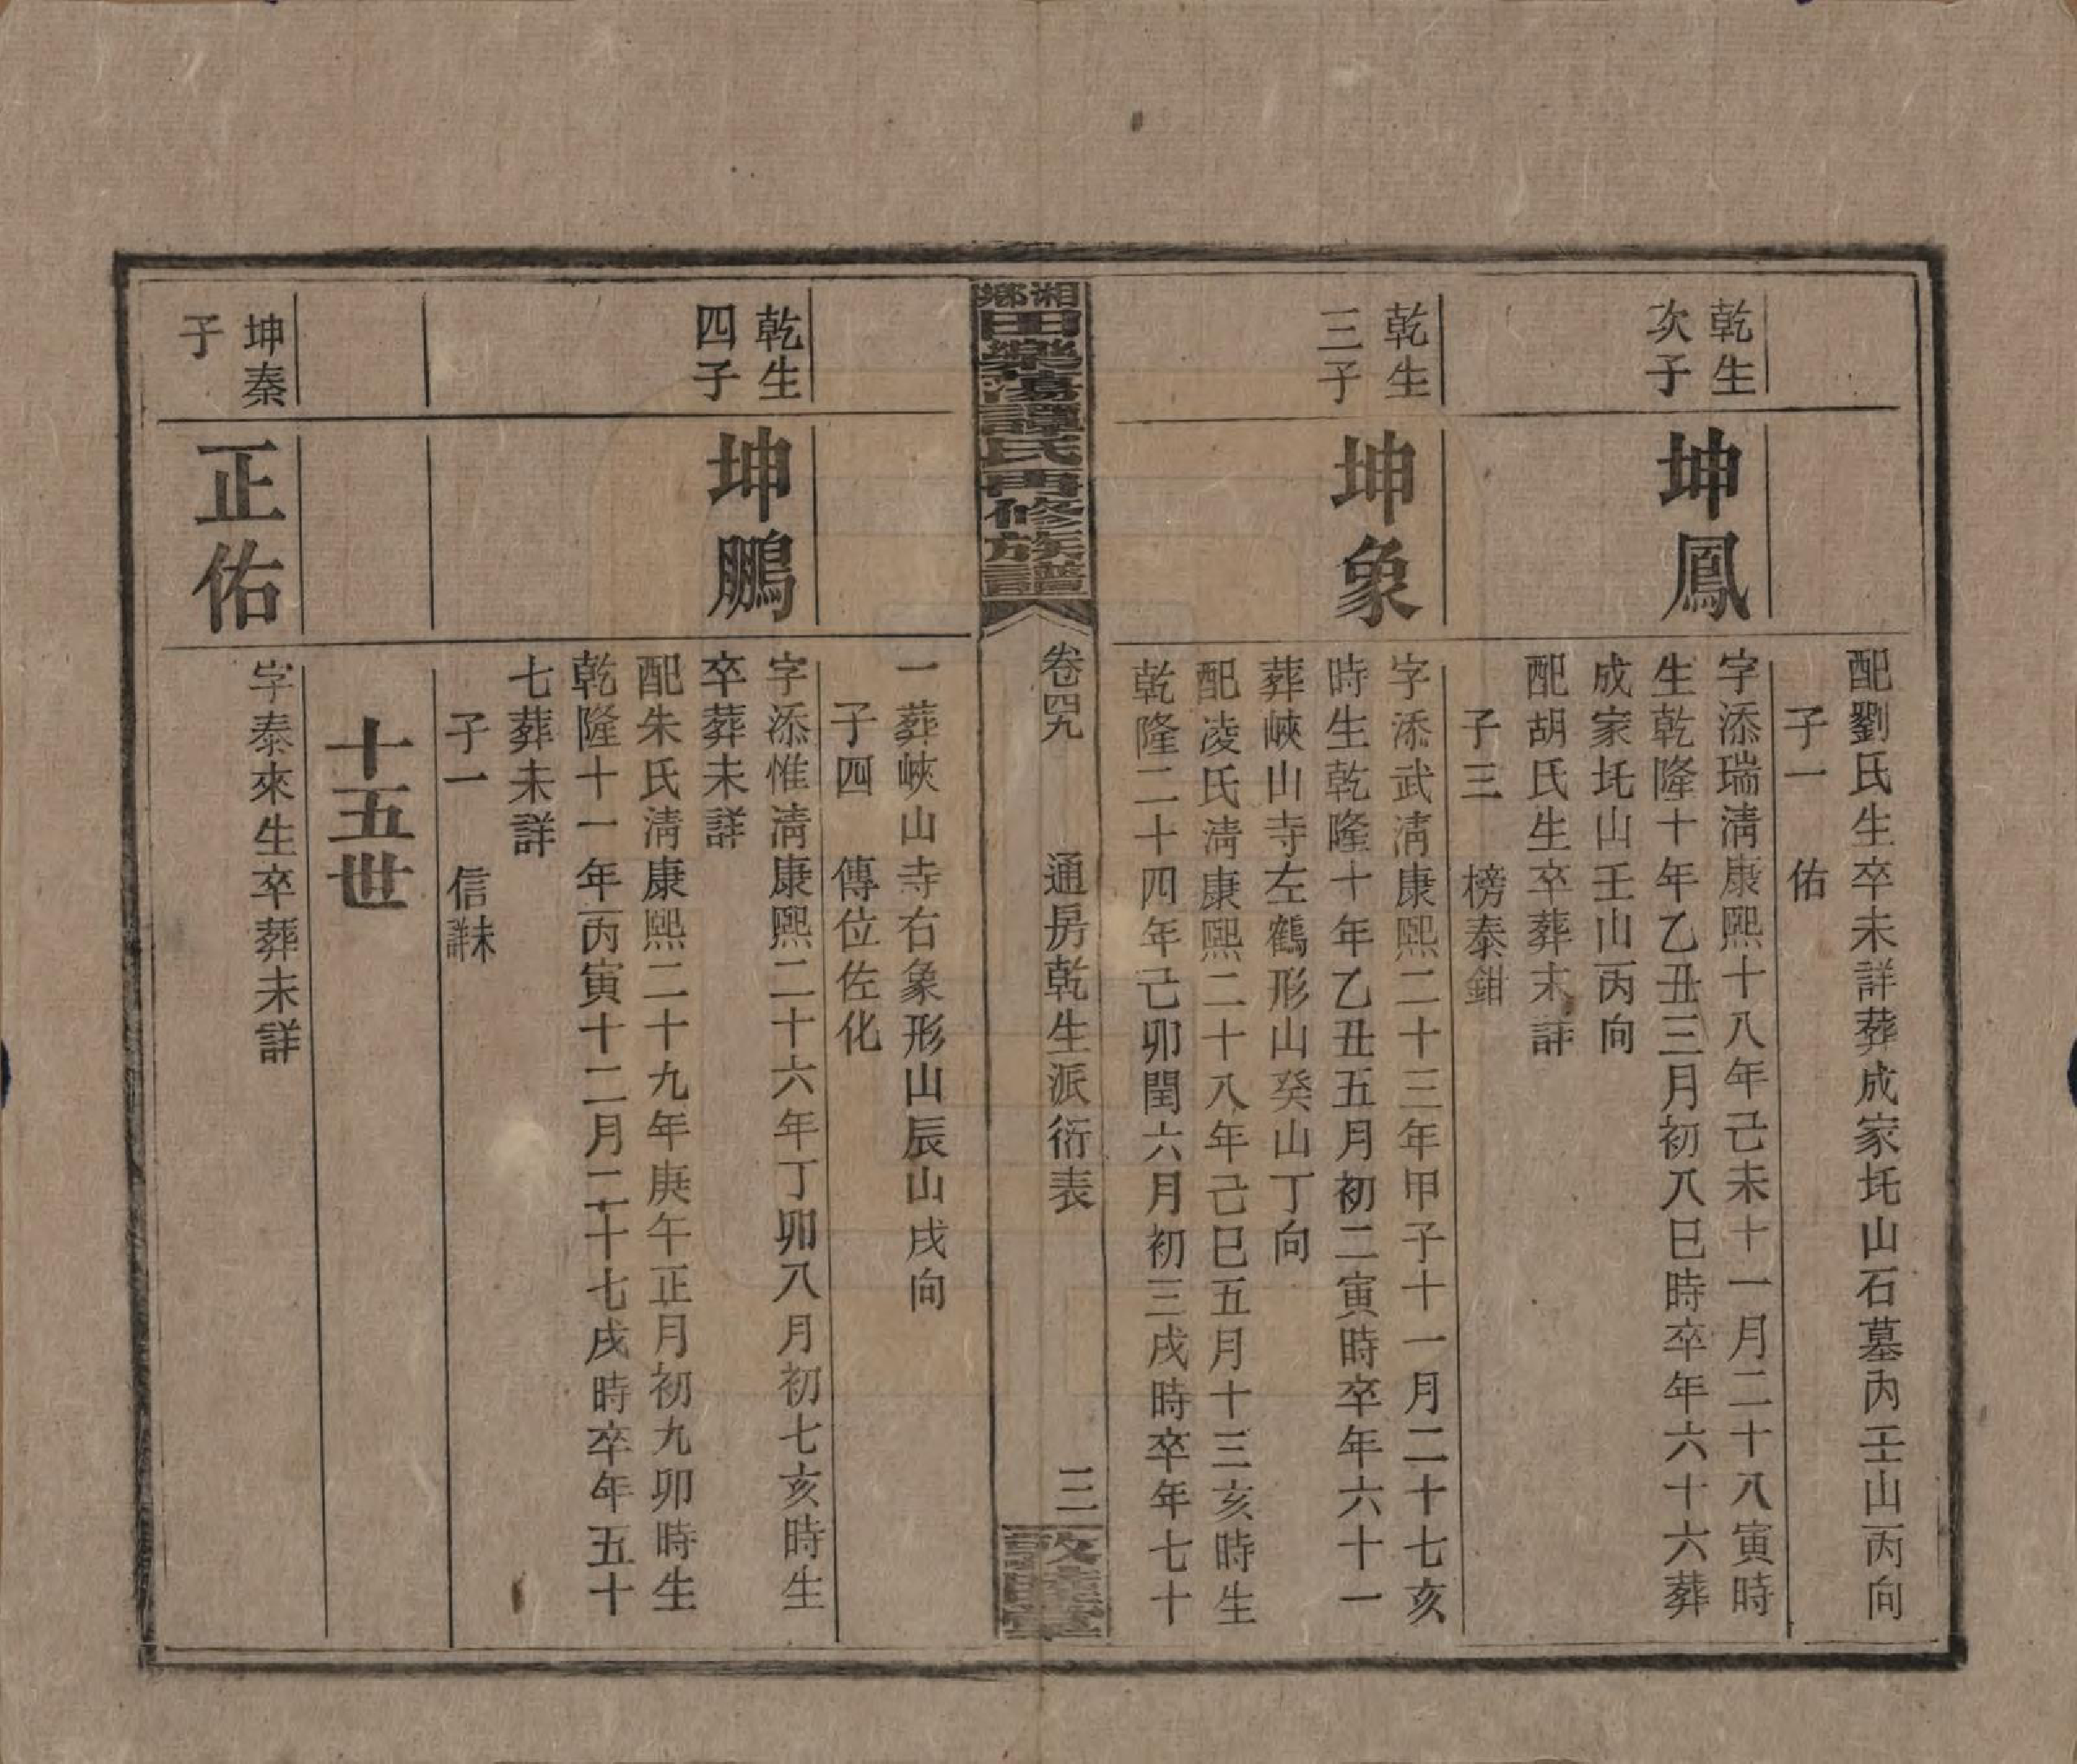 配劉氏生卒未詳葬成家圫山石墓內壬山丙向
子一　佑
乾生
次子
坤鳳
字添瑞清康熙十八年己未十一月二十八寅時
生乾隆十年乙丑三月初八巳時卒年六十六葬
成家圫山壬山丙向
配胡氏生卒葬未詳
子三　榜泰鉗
乾生
三子
坤象
字添武清康熙二十三年甲子十一月二十七亥
時生乾隆十年乙丑五月初二寅時卒年六十一
葬峽山寺左鶴形山癸山丁向
配凌氏清康熙二十八年己巳五月十三亥時生
乾隆二十四年己卯閏六月初三戌時卒年七十
湘鄉田樂蕩譚氏再修族譜
卷四九　通房乾生派衍表　三
敦睦堂
一葬峽山寺右象形山辰山戌向
子四　傳位佐化
乾生
四子
坤鵬
字添惟清康熙二十六年丁卯八月初七亥時生
卒葬未詳
配朱氏清康熙二十九年庚午正月初九卯時生
乾隆十一年丙寅十二月二十七戌時卒年五十
七葬未詳
子一　信未詳
十五世
坤秦
子
正佑
字泰來生卒葬未詳